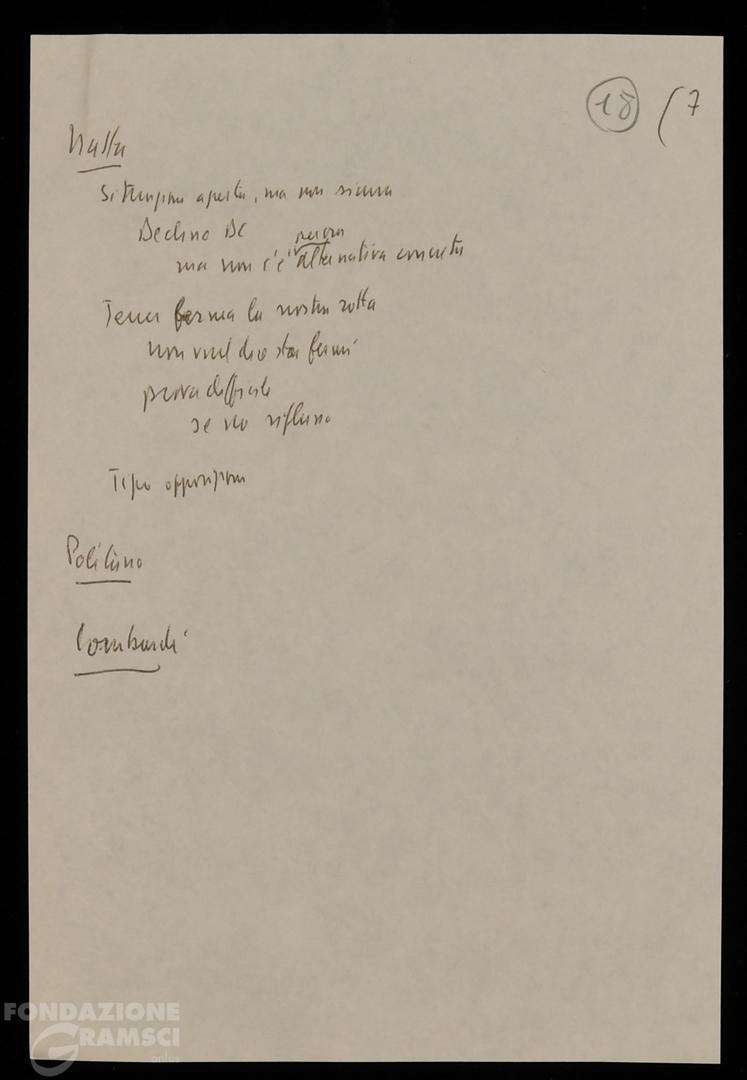 18 (7
Natta
Situazione aperta, ma non sicura
Declino DC
ancora
ma non c'è alternativa concreta
Tener ferma la nostra rotta
non vuol dire star fermi
prova difficile
se no
Tipo opposizione
Politano
Lombardi
FONDAZIONE
GRAMSCI
onlus